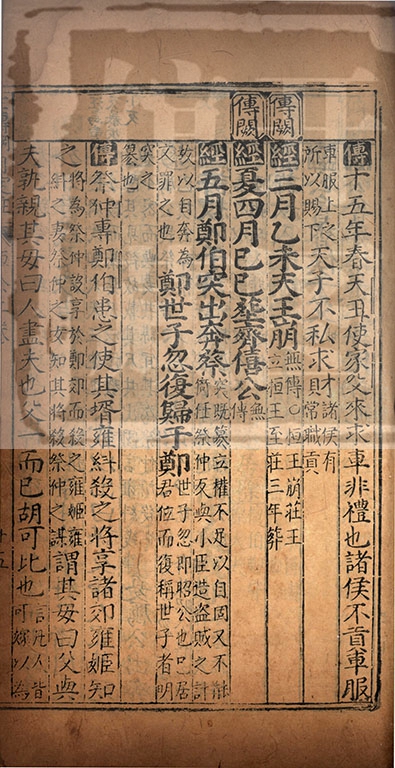 傳十五年春天王使家父來求車非禮也諸侯不貢車服
車服上之
所以賜下
天子不私求財
諸侯有
常職貢
傳闕
經三月乙未天王崩
無傳○桓王崩莊王
立桓王至莊三年葬
傳闕
經夏四月己巳葬齊僖公
無
傳
經五月鄭伯突出奔蔡
突既篡立權不足以自固又不能
倚任祭仲反與小臣造盜賊之計
故以自奔為
文罪之也
鄭世子忽復歸于鄭
世子忽即昭公也已居
君位而復稱世子者明
突之
篡也
傳祭仲專鄭伯患之使其壻雍糾殺之將享諸郊雍姬知
之
將為祭仲設享於鄭郊而殺之雍姬雍
糾之妻祭仲之女知其將殺祭仲之謀
謂其母曰父與
夫孰親其母曰人盡夫也父一而已胡可比也
言凡人皆
可嫁以為